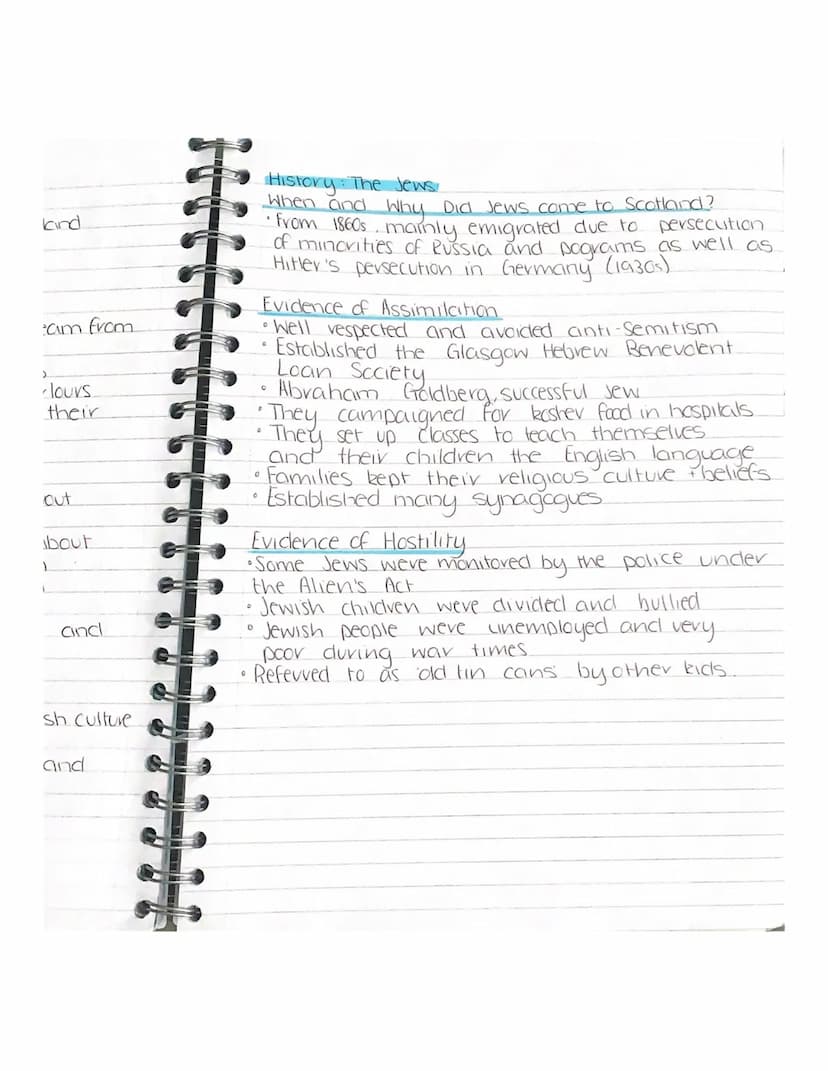 land
eam from
lours
their
out
about
and
sh culture
and
History: The Jews
When and Why Did Jews come to Scotland?
• From 1860s, mainly emigrated due to persecution
of minorities of Russia and pograms as well as
Hitler's persecution in Germany (1930s)
Evidence of Assimilation
• Well respected and avoided anti-semitism
• Established the Glasgow Hebrew Benevolent
Loan Society
• Abraham Goldberg, successful Jew
• They campaigned for kosher food in hospitals
• They set up classes to teach themselves
and their children the English language
• Families kept their religious culture + beliefs
• Established many synagogues
Evidence of Hostility
• Some Jews were monitored by the police under
the Alien's Act
• Jewish children were divided and bullied
• Jewish people were unemployed and very
poor during war times
• Referred to as 'old tin cans' by other kids.